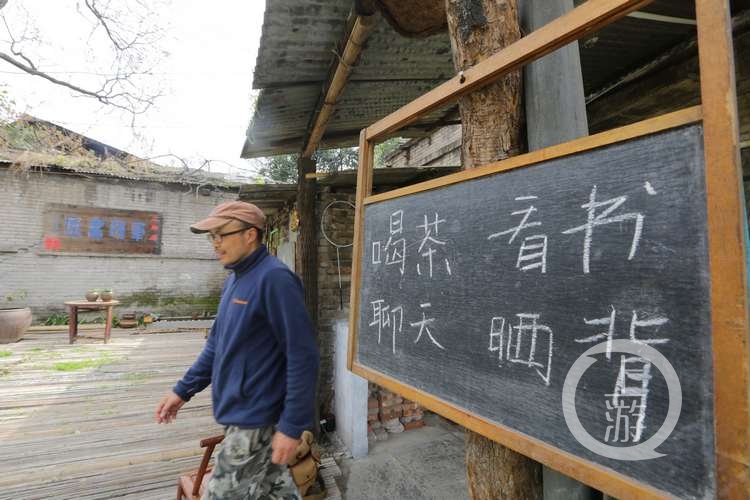 喝茶 看书
聊天 晒背
游